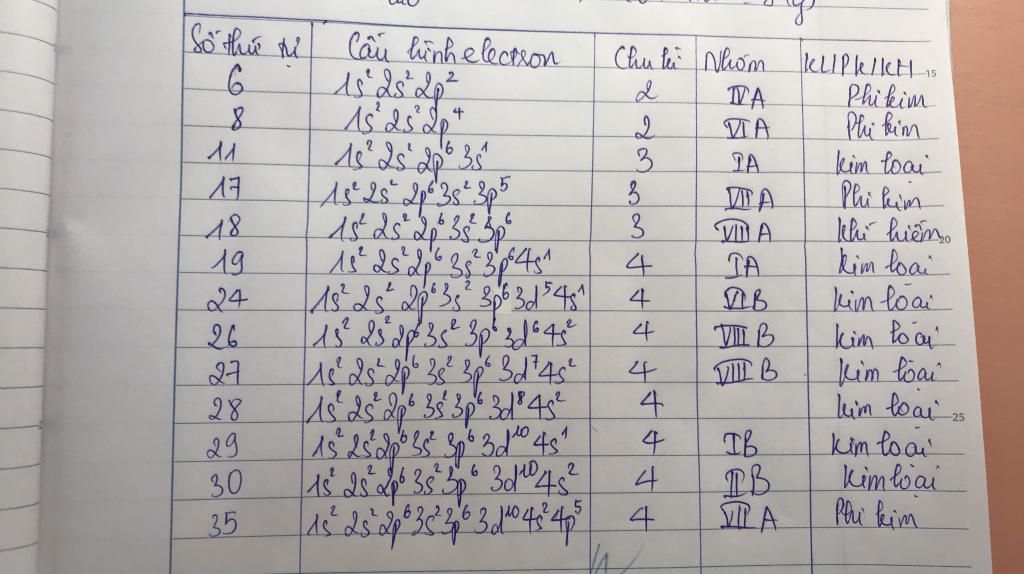 Số thứ tự Cấu hình electron Chu kì Nhóm KL/PK/KH 15
6 1s² 2s² 2p² 2 IVA Phi kim
8 1s² 2s² 2p⁴ 2 VIA Phi kim
11 1s² 2s² 2p⁶ 3s¹ 3 IA kim loại
17 1s² 2s² 2p⁶ 3s² 3p⁵ 3 VIIA Phi kim
18 1s² 2s² 2p⁶ 3s² 3p⁶ 3 VIIIA khí hiếm 20
19 1s² 2s² 2p⁶ 3s² 3p⁶ 4s¹ 4 IA kim loại
24 1s² 2s² 2p⁶ 3s² 3p⁶ 3d⁵ 4s¹ 4 VIB kim loại
26 1s² 2s² 2p⁶ 3s² 3p⁶ 3d⁶ 4s² 4 VIIIB kim loại
27 1s² 2s² 2p⁶ 3s² 3p⁶ 3d⁷ 4s² 4 VIIIB kim loại
28 1s² 2s² 2p⁶ 3s² 3p⁶ 3d⁸ 4s² 4 kim loại 25
29 1s² 2s² 2p⁶ 3s² 3p⁶ 3d¹⁰ 4s¹ 4 IB kim loại
30 1s² 2s² 2p⁶ 3s² 3p⁶ 3d¹⁰ 4s² 4 IIB kim loại
35 1s² 2s² 2p⁶ 3s² 3p⁶ 3d¹⁰ 4s² 4p⁵ 4 VIIA Phi kim